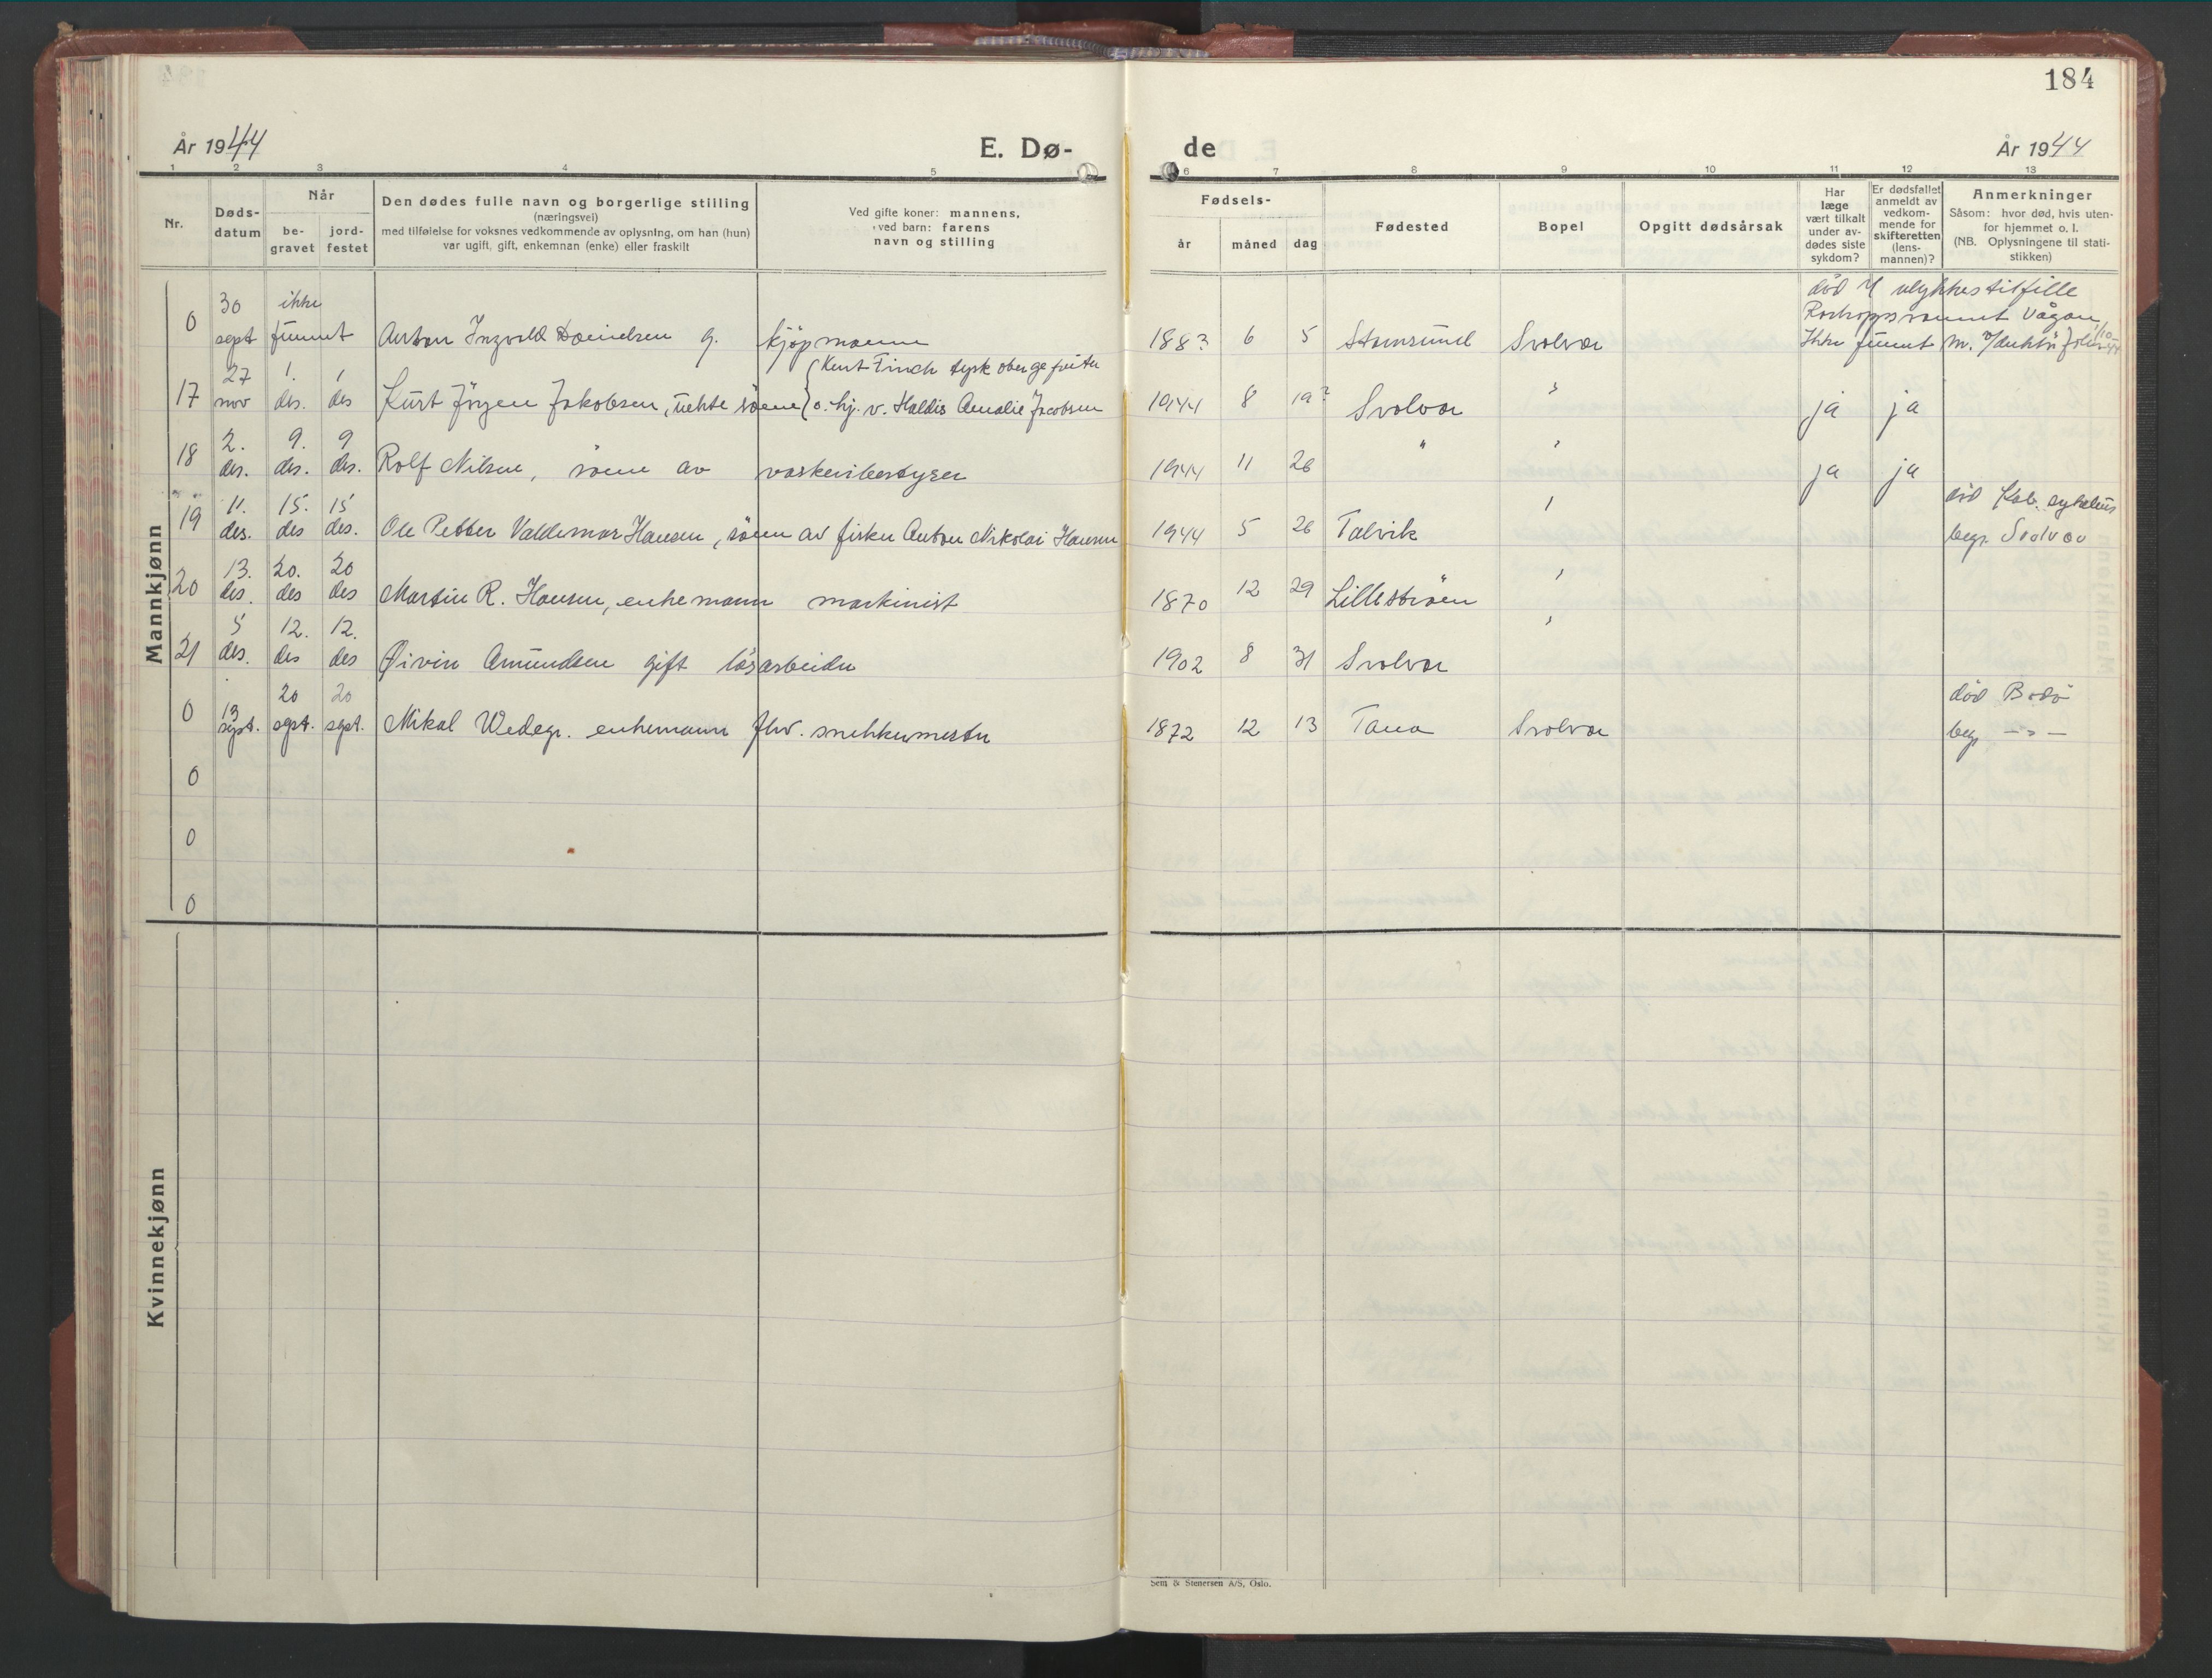 184
År 1944
E. Dø-
de
År 1944
1 2 3 4 5 6 7 8 9 10 11 12 13
Nr.
Døds-
datum
Når
be-
gravet
jord-
festet
Den dødes fulle navn og borgerlige stilling
(næringsvei)
med tilføielse for voksnes vedkommende av oplysning, om han (hun)
var ugift, gift, enkemnan (enke) eller fraskilt
Ved gifte koner: mannens,
ved barn: farens
navn og stilling
Fødsels-
år
måned
dag
Fødested
Bopel
Opgitt dødsårsak
Har
læge
vært tilkalt
under av-
dødes siste
sykdom?
Er dødsfallet
anmeldt av
vedkom-
mende for
skifteretten
(lens-
mannen)?
Anmerkninger
Såsom: hvor død, hvis uten-
for hjemmet o. l.
(NB. Oplysningene til stati-
stikken)
Mannkjønn
30 ikke død ulykkestilfelle
Vågan
0 sept funnet Anton Ingvald Danielsen g. kjøpmann 1883 6 5 Stamsund Svolvær Ikke funnet
27 1. 1 tysk obergefreiter
17 nov des. des Kurt Jörgen Jakobsen, uekte sönn o. hj. v. Haldis Amalie Jacobsen 1944 8 19? Svolvær " ja ja
2. 9. 9
18 des. des. des. Rolf Nilsen, sönn av vaskeribestyrer 1944 11 26 " " ja ja
11. 15. 15 død sykehus
19 des. des des. Ole Petter Valdemar Hansen, sönn av fisker Anton Nikolai Hansen 1944 5 26 Talvik " begr. Svolvær
13. 20. 20
20 des. des des Martin R. Hansen, enkemann maskinist 1870 12 29 Lilleström "
5 12. 12.
21 des. des des Øivin Amundsen gift løsarbeider 1902 8 31 Svolvær "
20 20 død Bodö
0 13 sept. sept. sept. Mikal Wedege. enkemann fhv. snekkermester 1872 12 13 Tana Svolvær begr —"—
0
0
0
Kvinnekjønn
Sem & Stenersen A/S, Oslo.